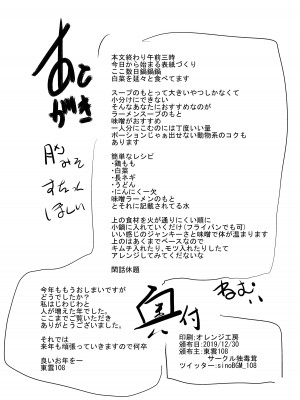 あとがき
本文終わり午前三時
今日から始まる表紙づくり
ここ数日鍋鍋鍋
白菜を延々と食べてます
スープのもとって大きいやつしかなくて
小分けにできない
そんなあなたにおすすめなのが
ラーメンスープのもと
味噌がおすすめ
一人分にこむのには丁度いい量
ポーションじゃぁ出せない動物系のコクも
あります
簡単なレシピ
・鶏もも
・白菜
・長ネギ
・うどん
・にんにく一欠
味噌ラーメンのもと
とそれに記載されてる水
上の食材を火が通りにくい順に
小鍋に入れていくだけ(フライパンでも可)
いい感じのジャンキーさと味噌で体が温まります
上のはあくまでベースなので
キムチ入れたり、モツ入れたりしたて
アレンジしてみてくださいな
閑話休題
みそ
ほしい
今年ももうおしまいですが
どうでしたか?
私はじわじわと
人が増えた年でした。
ここまでご覧いただき
ありがとうございました。
それでは
来年も頑張っていきますので何卒
良いお年をー
東雲108
ねむい
奥付
印刷:オレンジ工房
頒布日:2019/12/30
頒布主:東雲108
サークル独毒茸
ツイッター:sinoBGM_108